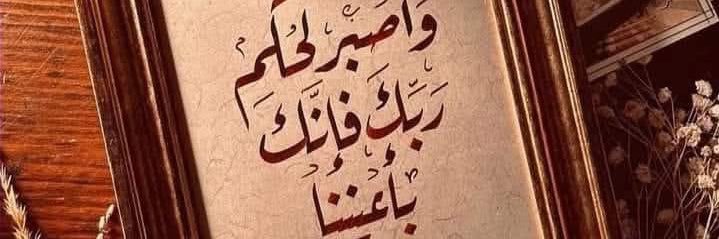 وَاصْبِرْ لِحُكْمِ
رَبِّكَ فَإِنَّكَ
بِأَعْيُنِنَا